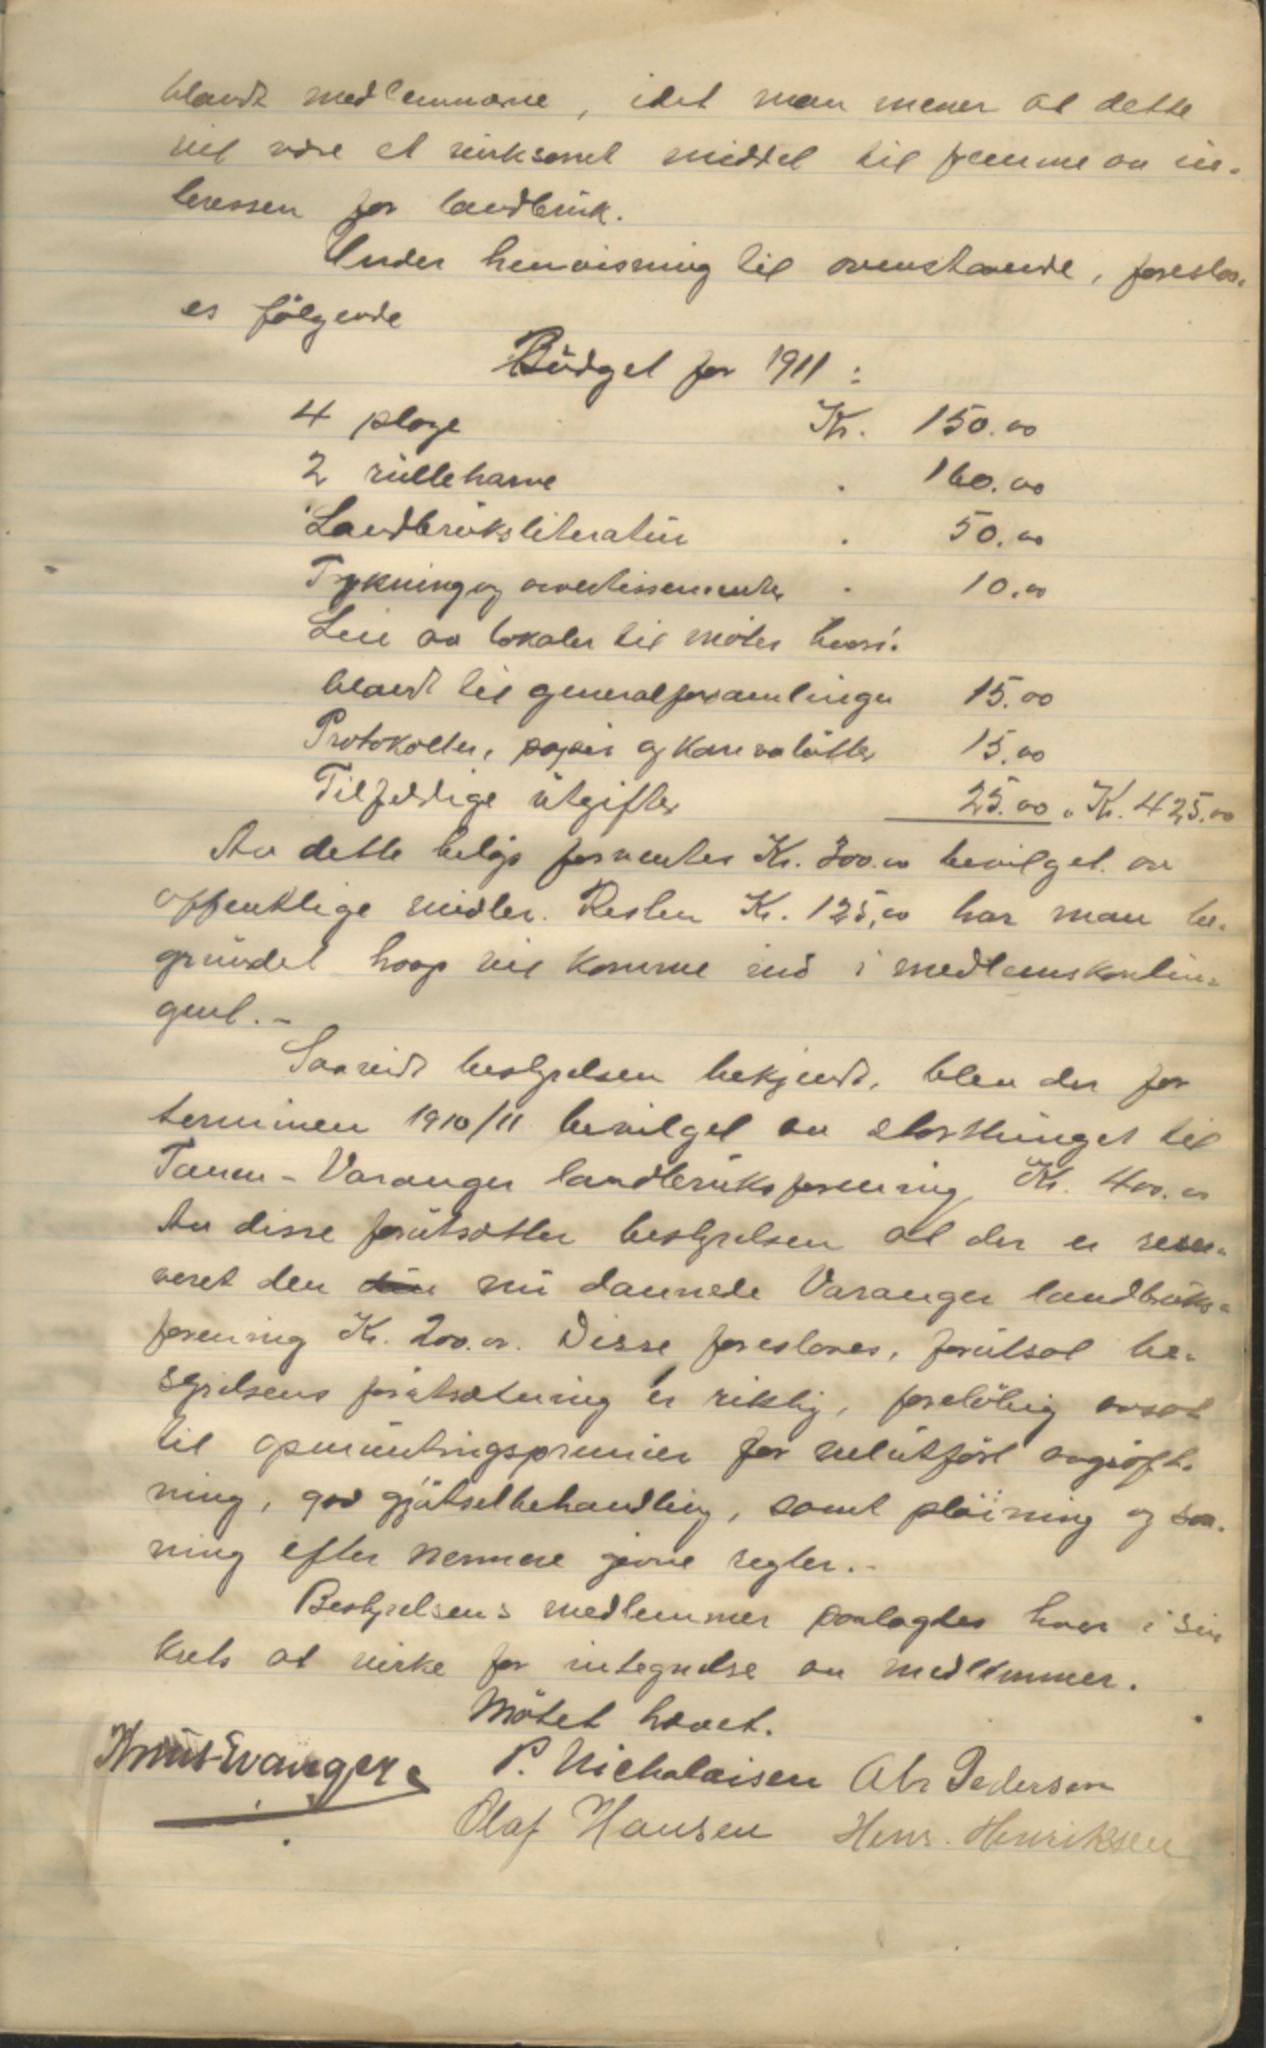 blandt medlemmerne, idet man mener at dette
vil være et virksomt middel til fremme av in-
teressen for landbruk.
Under henvisning til ovenstaaende, foreslaa-
es følgende
Büdget for 1911:
4 ploge Kr. 150.00
2 rülleharve . 160.00
Landbrüksliteratür . 50.00
Trykning og avertissementer . 10.00
Leie av lokaler til møter hvori-
blandt til generalforsamlinger 15.00
Protokoller, papir og konvolütter 15.00
Tilfeldige ütgifter 25.00 . Kr. 425.00
Av dette beløp forventes Kr. 300.00 bevilget av
offentlige midler. Resten Kr. 125,00 har man be-
gründet haap vil komme ind i medlemskontin-
gent. -
Saavidt bestyrelsen bekjendt, blev der for
terminen 1910/11 bevilget av stortinget til
Tanen - Varanger landbrüksforening Kr. 400.00
Av disse forütsætter bestyrelsen at der er reser-
veret den nü dannede Varanger landbrüks-
forening Kr. 200.00. Disse foreslaaes, forütsat be-
styrelsens forütsætning er riktig, foreløbig avsat
til opmüntringspremier for velütført avgrøft-
ning, god gjødselbehandling, samt pløining og saa-
ning efter nærmere givne regler. -
Bestyrelsens medlemmer paalagdes hver i sin
kreds at virke for indtegnelse av medlemmer.
Møtet hævet.
Knut Evanger. P. Nicholaisen Abr Pedersen
Olaf Hansen Henr. Henriksen